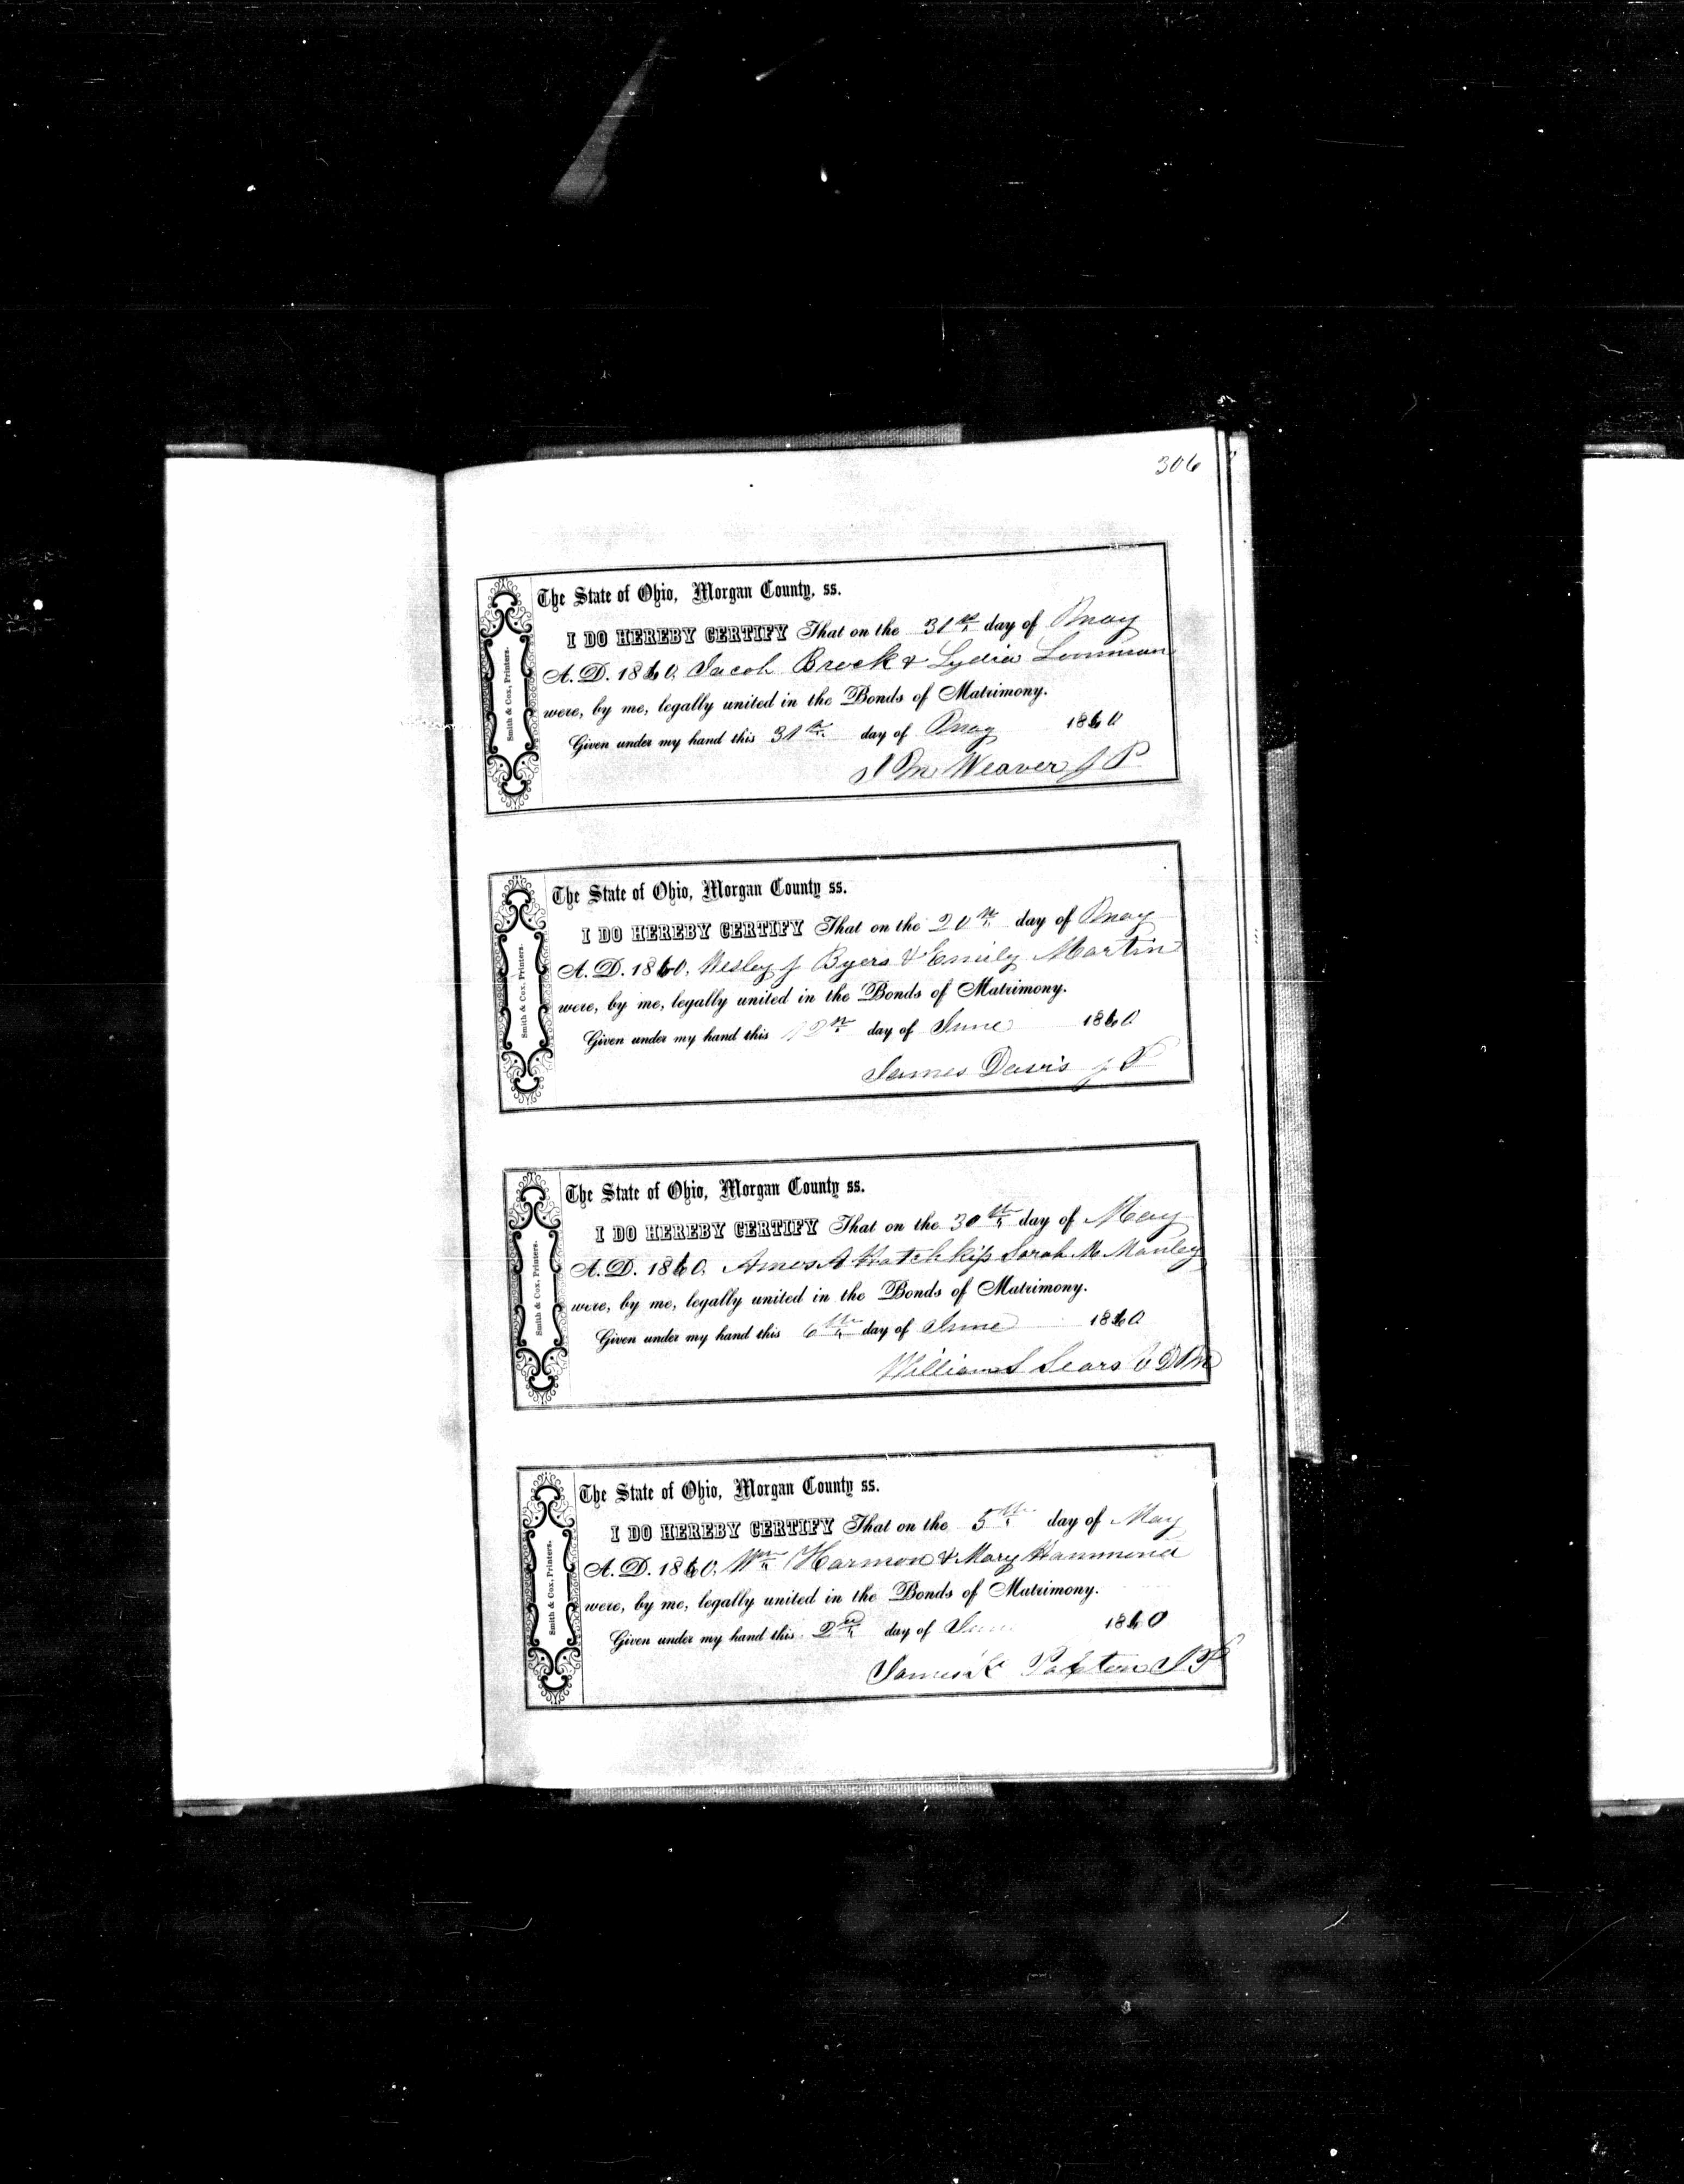 306
The State of Ohio, Morgan County, ss.
I DO HEREBY CERTIFY That on the 31st day of May
A. D. 1860, Jacob Brock & Lydia
were, by me, legally united in the Bonds of Matrimony.
Given under my hand this 31st day of May 1860
J M Weaver J P
Smith & Cox, Printers.
The State of Ohio, Morgan County ss.
I DO HEREBY CERTIFY That on the 20th day of May
A. D. 1860, Wesley J Byers & Emily Martin
were, by me, legally united in the Bonds of Matrimony.
Given under my hand this 12th day of June 1860.
James Davis J P
Smith & Cox, Printers.
The State of Ohio, Morgan County ss.
I DO HEREBY CERTIFY That on the 30th day of May
A. D. 1860, Amos A Hotchkiss Sarah M Manley
were, by me, legally united in the Bonds of Matrimony.
Given under my hand this 6th day of June 1860
William S Sears V D M
Smith & Cox, Printers.
The State of Ohio, Morgan County ss.
I DO HEREBY CERTIFY That on the 5th day of May
A. D. 1860, Wm Harmon & Mary Hammond
were, by me, legally united in the Bonds of Matrimony.
Given under my hand this 2nd day of 1860
James J P
Smith & Cox, Printers.